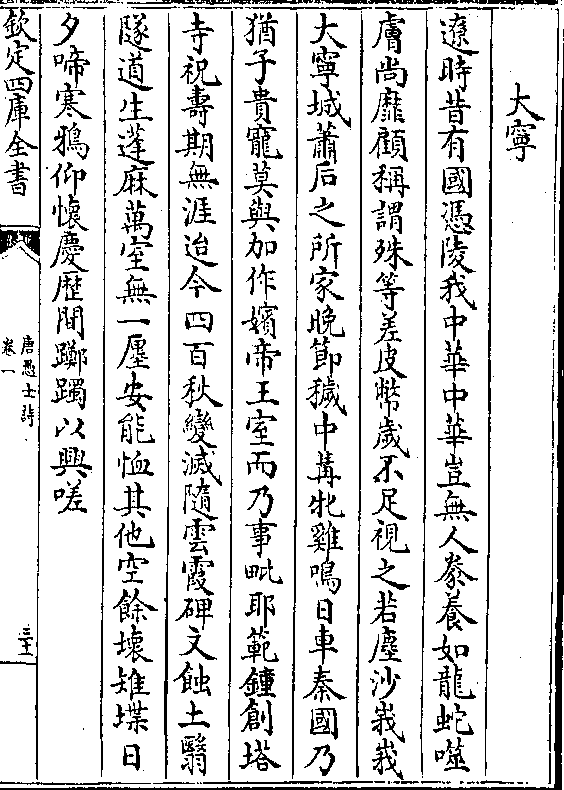 大寧
遼時昔有國憑陵我中華中華豈無人豢養如龍蛇噬
膚尚靡顧稱謂殊等差皮幣歲不足視之若塵沙峩峩
大寧城蕭后之所家晚節穢中冓牝雞鳴日車秦國乃
猶子貴寵莫與加作嬪帝王室而乃事毗耶範鍾創塔
寺祝壽期無涯迨今四百秋變滅隨雲霞碑文蝕土翳
隧道生蓬麻萬室無一㕓安能恤其他空餘壞雉堞日
夕啼寒鴉仰懐慶歴間躑躅以興嗟
欽定四庫全書
唐愚士詩
卷一